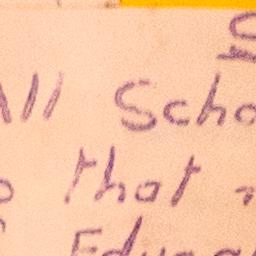 All Scho
that
Educa